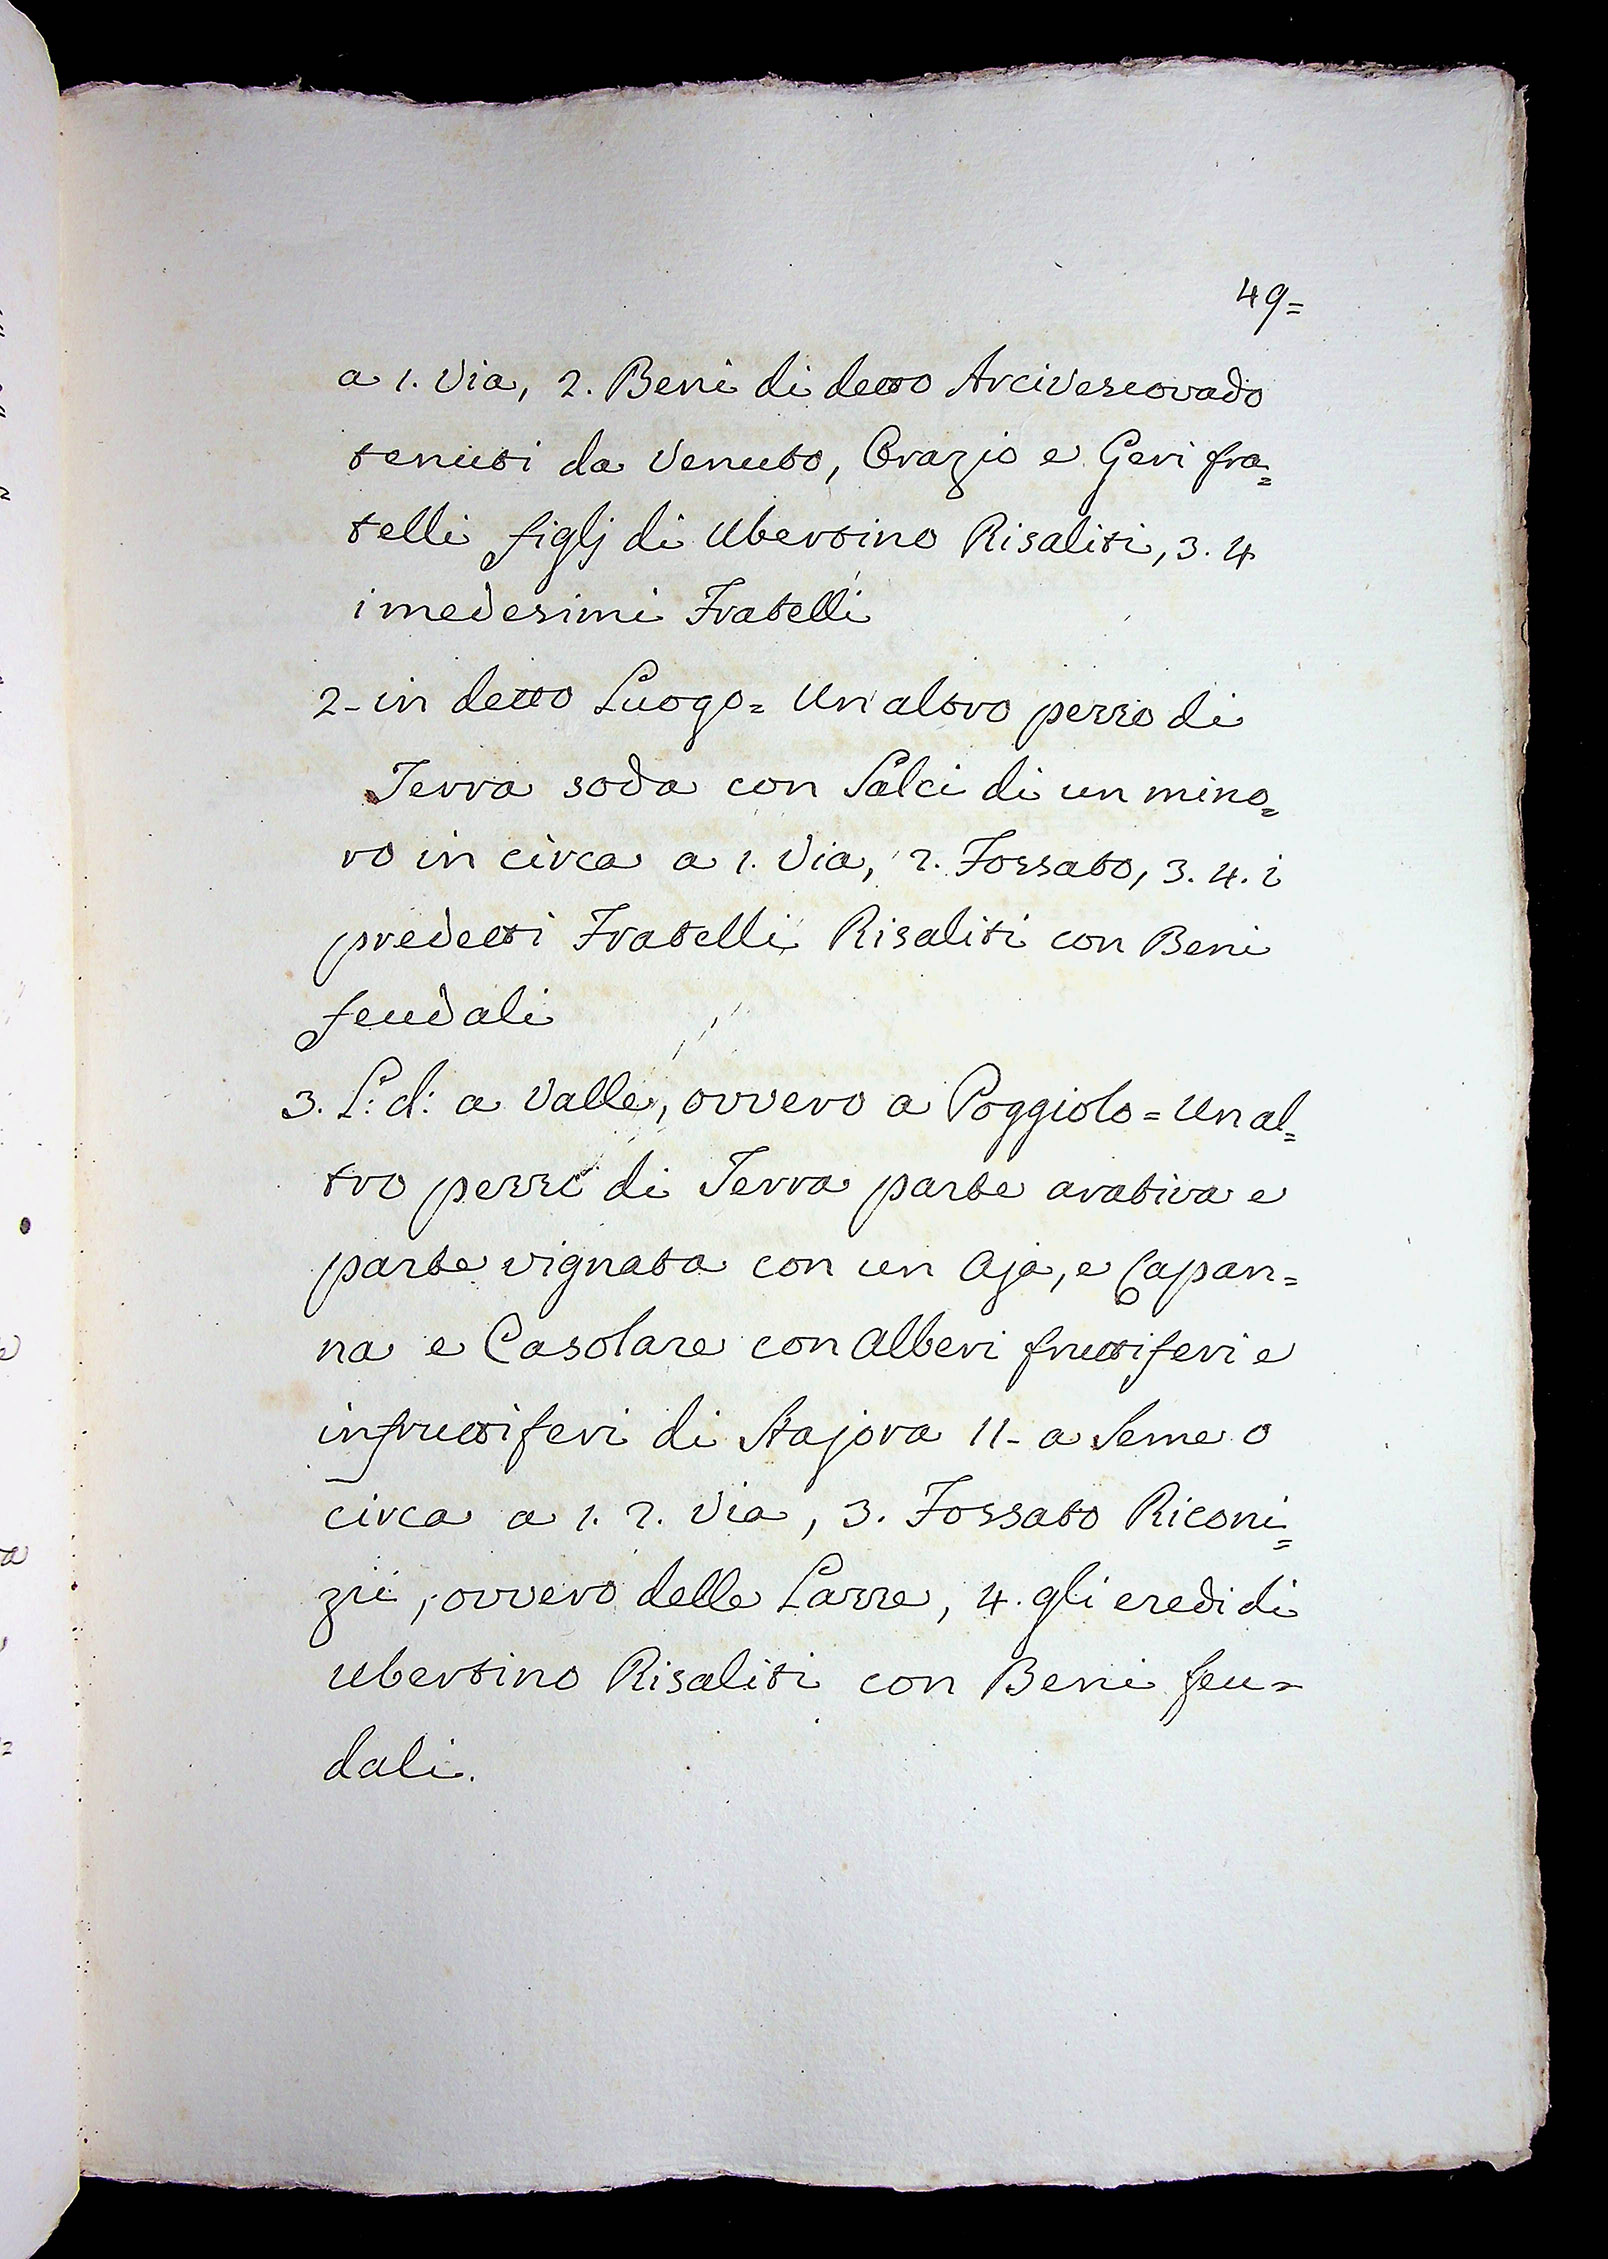 49=
a 1. Via, 2. Beni di detto Arcivescovado
tenuti da Venuto, Orazio e Geri fra=
telli figlj di Ubertino Risaliti, 3. 4
i medesimi Fratelli
2- in detto Luogo= Un altro pezzo di
Terra soda con Salci di un mino=
ro in circa a 1. Via, 2. Fossato, 3. 4. i
predetti Fratelli Risaliti con Beni
feudali
3. L: d: a Valle, ovvero a Poggiolo= Un al=
tro pezzo di Terra parte arativa e
parte vignata con un Aja, e Capan=
na e Casolare con Alberi fruttiferi e
infruttiferi di Stajora 11- a Seme o
circa a 1. 2. Via, 3. Fossato Riconi=
zii, ovvero delle Lazze, 4. gli eredi di
Ubertino Risaliti con Beni feu=
dali.